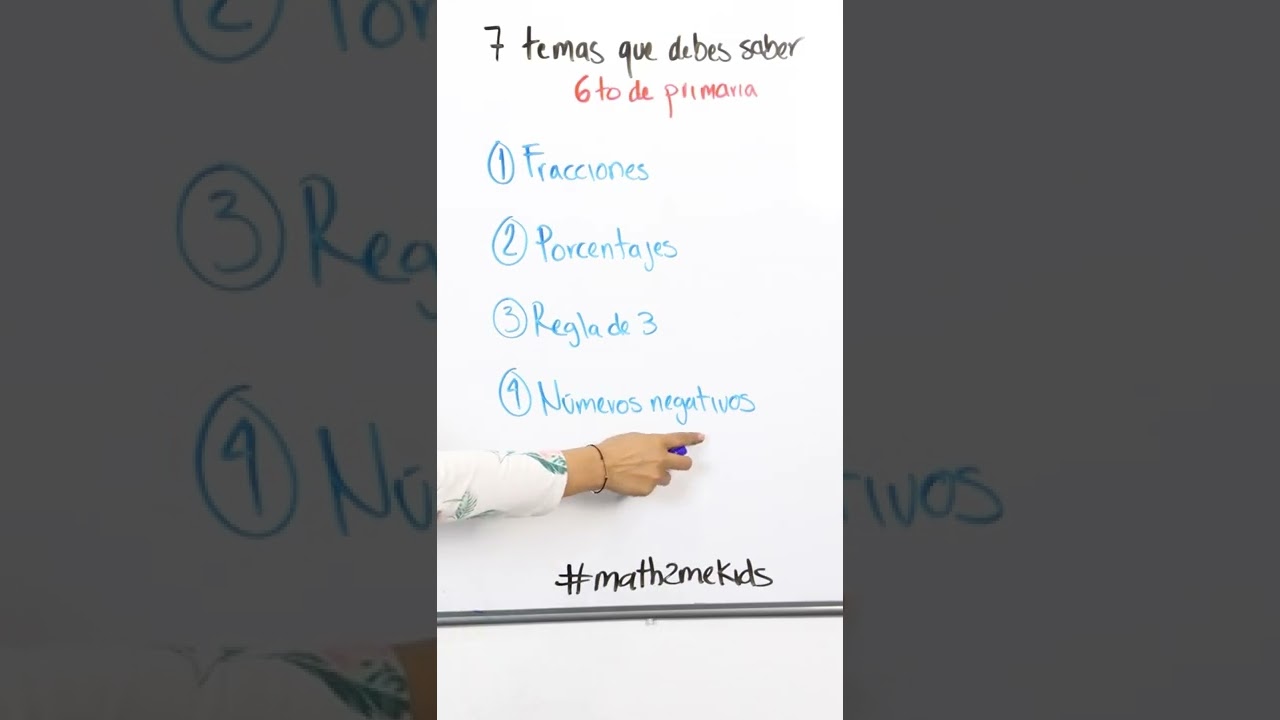 7 temas que debes saber
6to de primaria
① Fracciones
② Porcentajes
③ Regla de 3
④ Números negativos
#math2mekids